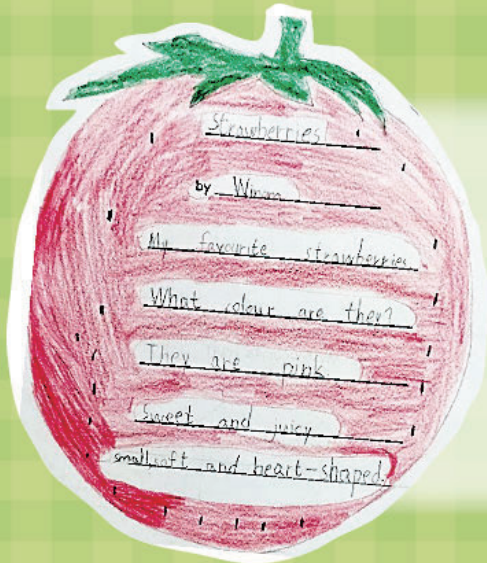 Strawberries
by Winson
My favourite strawberries.
What colour are they?
They are pink.
Sweet and juicy
small,soft and heart-shaped.